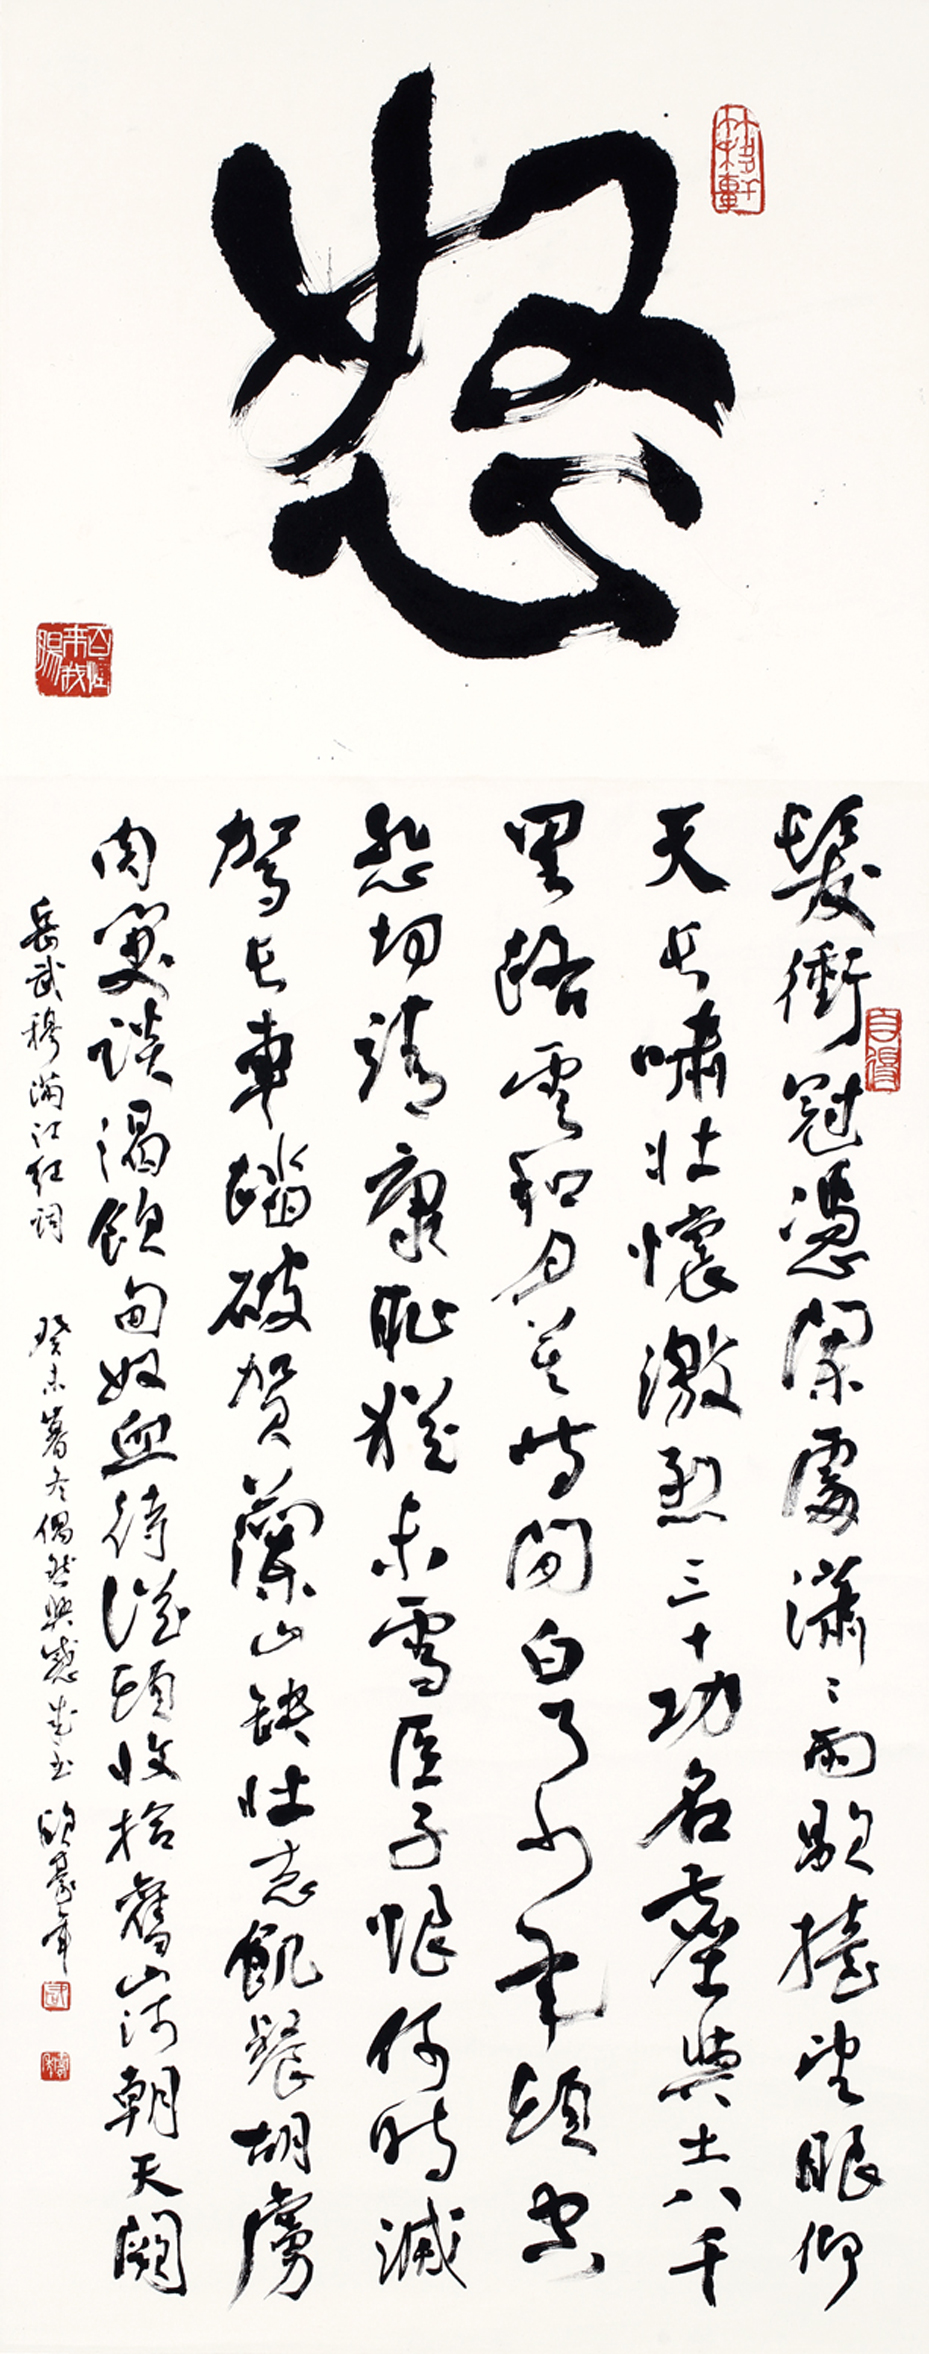 怒
髮衝冠憑闌處瀟〻雨歇擡望眼仰
天長嘯壯懷激烈三十功名塵與土八千
里路雲和月莫等閒白了少年頭空
悲切靖康恥猶未雪臣子恨何時滅
駕長車踏破賀蘭山缺壯志飢餐胡虜
肉笑談渴飲匈奴血待從頭收拾舊山河朝天闕
岳武穆滿江紅詞 癸未暮冬偶然興感 歐豪年
自得